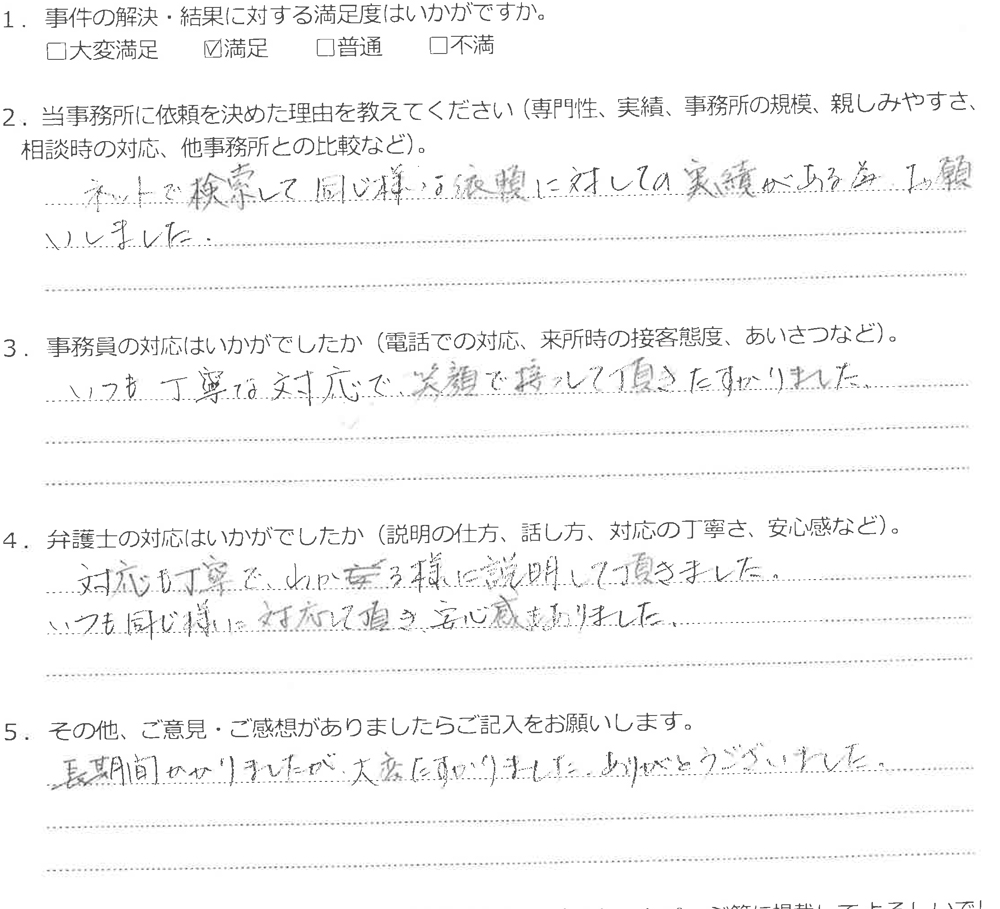 1. 事件の解決・結果に対する満足度はいかがですか。
□大変満足 ☑満足 □普通 □不満
2. 当事務所に依頼を決めた理由を教えてください（専門性、実績、事務所の規模、親しみやすさ、
相談時の対応、他事務所との比較など）。
ネットで検索して同じ様な依頼に対しての実績がある為、お願
いしました.
3. 事務員の対応はいかがでしたか（電話での対応、来所時の接客態度、あいさつなど）。
いつも丁寧な対応で、笑顔で接っして頂きたすかりました.
4. 弁護士の対応はいかがでしたか（説明の仕方、話し方、対応の丁寧さ、安心感など）。
対応も丁寧で、わかる様に説明して頂きました.
いつも同じ様に対応して頂き、安心感もありました.
5. その他、ご意見・ご感想がありましたらご記入をお願いします。
長期間かかりましたが、大変たすかりました. ありがとうございました.